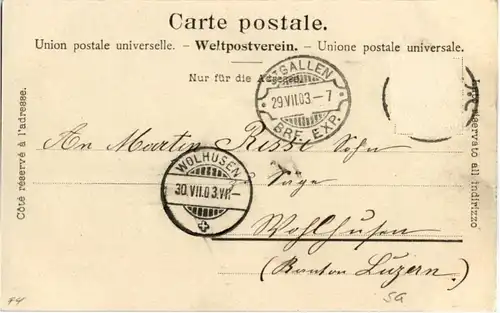 Carte postale.
Union postale universelle. – Weltpostverein. – Unione postale universale.
Nur für die Adresse.
Côté réservé à l'adresse.
Lato riservato all' indirizzo
ST. GALLEN
29.VII.03–7
BRF. EXP.
An Martin Sohn
WOLHUSEN
30.VII.03.VII–
Säge
Wohlhusen
(Kanton Luzern.)
SG